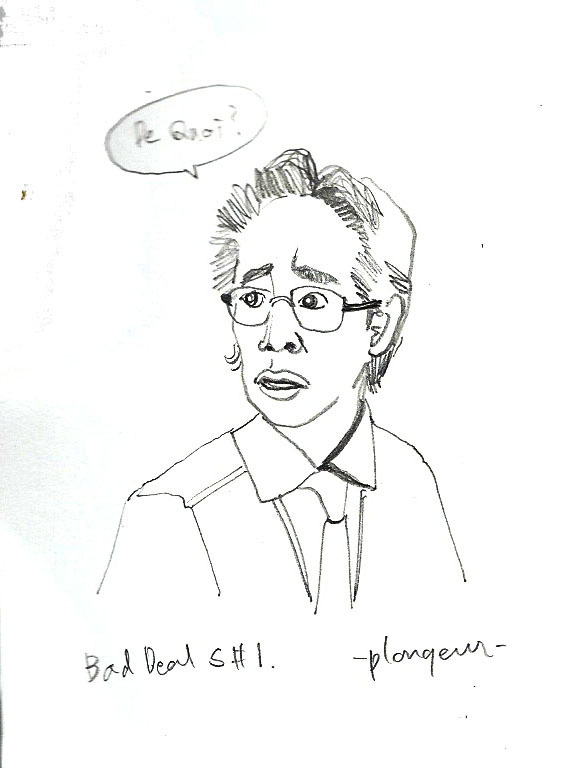 De Quoi?
Bad Deal S#1. -plongeur-